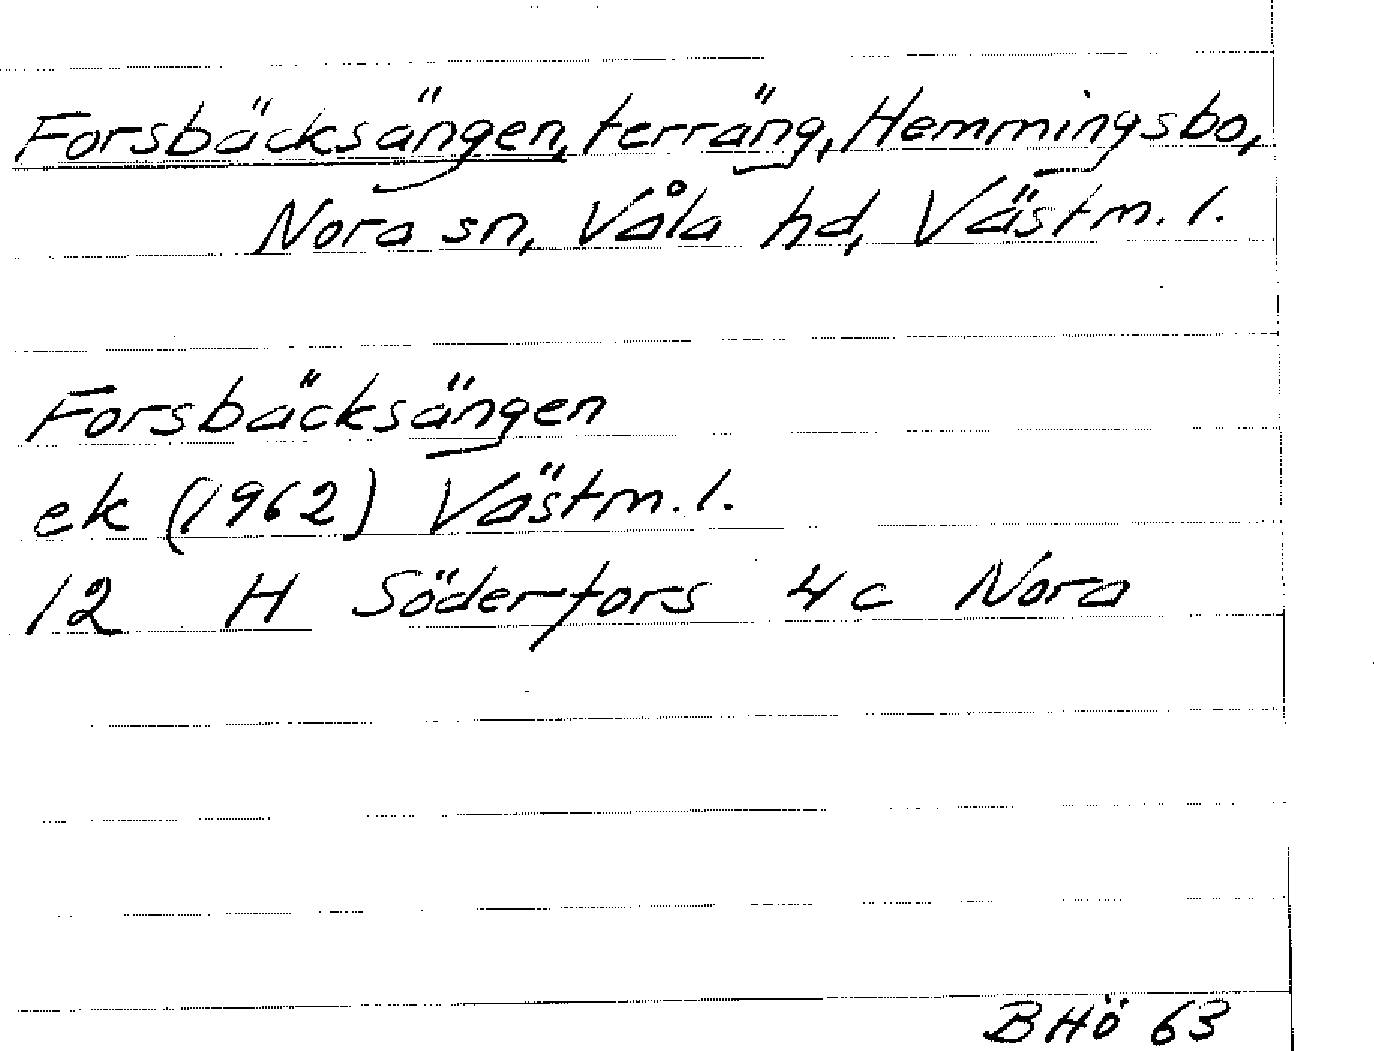 Forsbäcksängen, terräng, Hemmingsbo,
Nora sn, Våla hd, Västm. l.
Forsbäcksängen
ek (1962) Västm. l.
12 H Söderfors 4c Nora
BHö 63